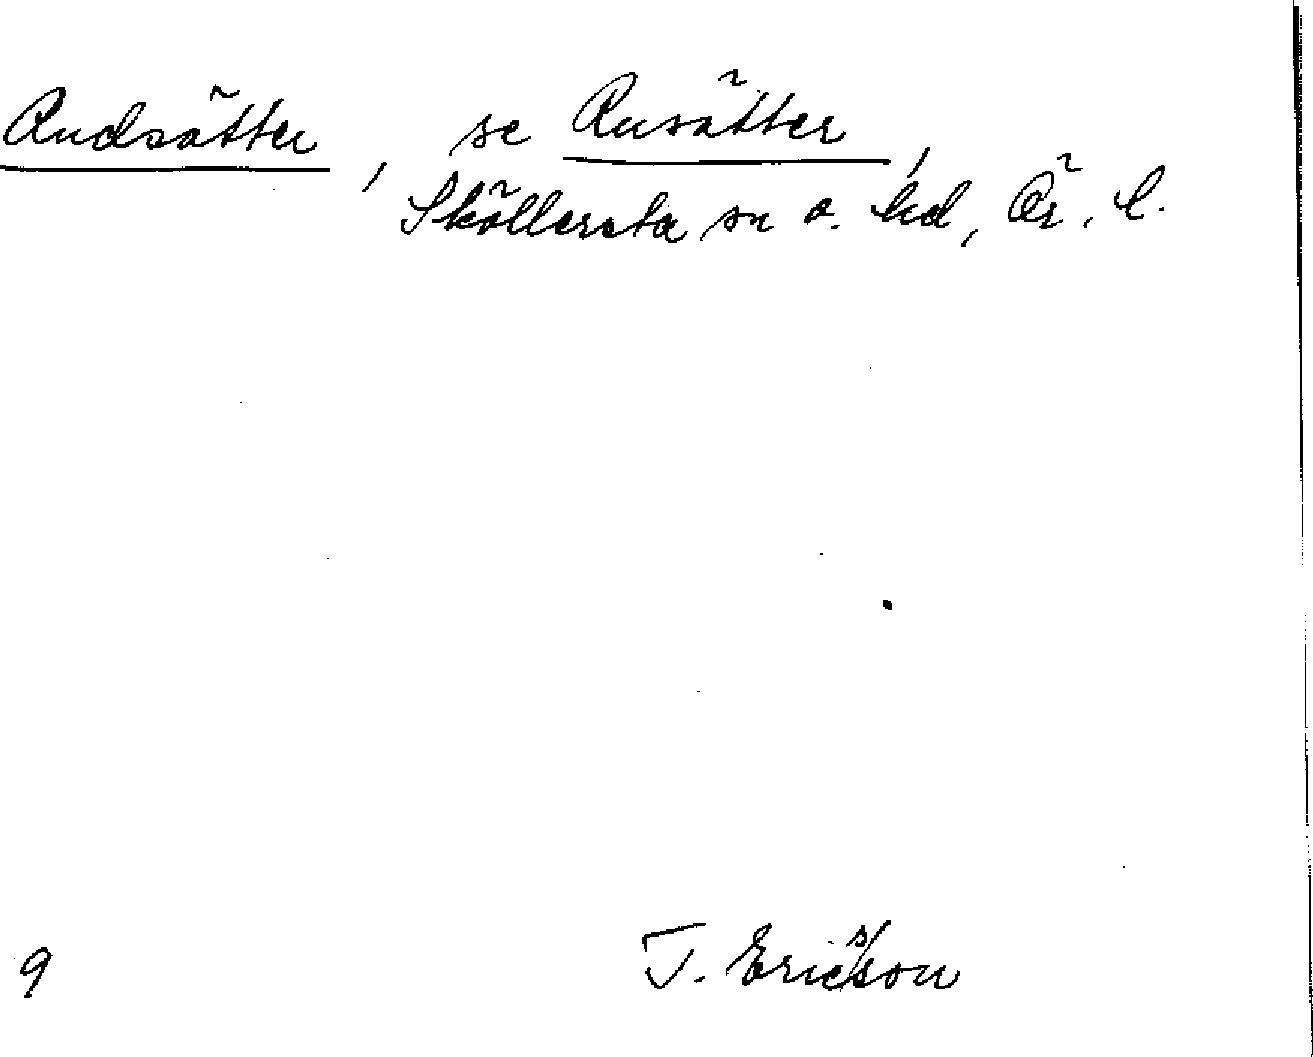 Rudsätter, se Rusätter,
Sköllersta sn o. hd, Ör. l.
9 T. Ericsson